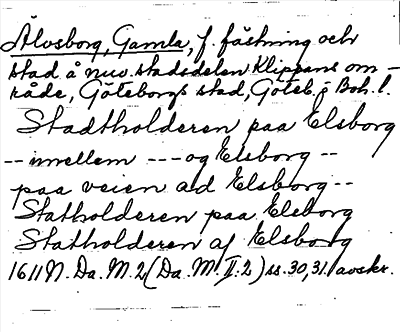 Älvsborg, Gamla, f. fästning och
stad å nuv. stadsdelen Klippans om-
råde, Göteborgs stad, Göteb. o Boh. l.
Stadtholderen paa Elsborg
-- imellem --- og Elsborg --
paa veien ad Elsborg --
Statholderen paa Elsborg
Statholderen af Elsborg
1611 N. Da. M. 2 (Da. M. II:2) ss. 30, 31. avskr.